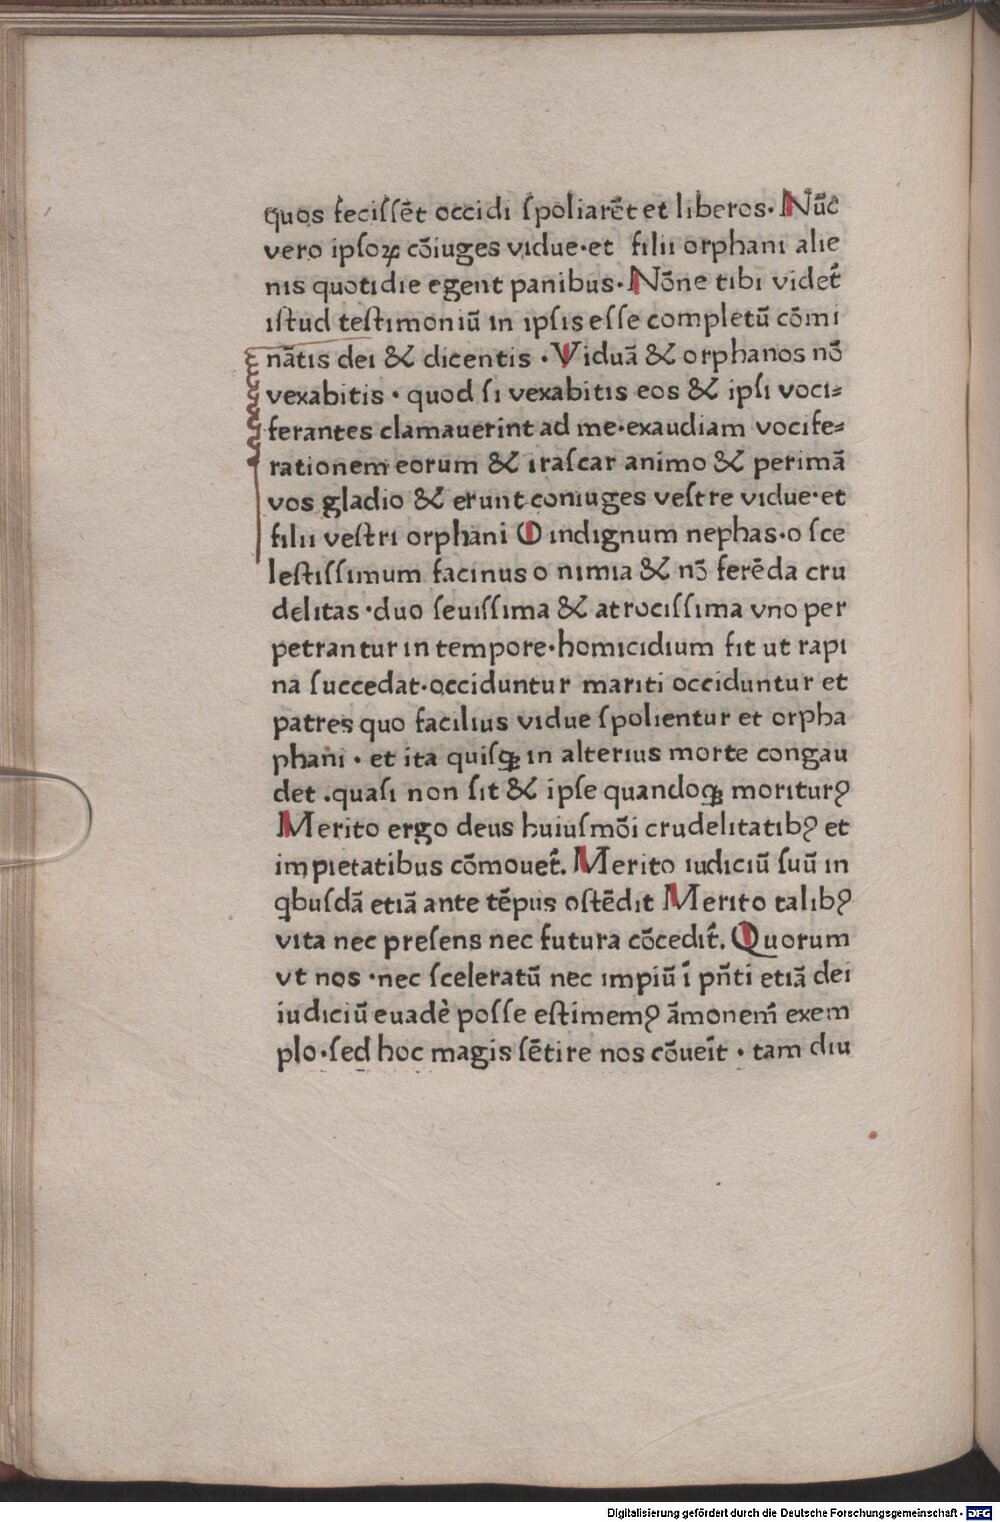 quos feciſſēt occidi ſpoliarēt et liberos· Nūc
vero ipſoꝝ cōiuges vidue·et filii orphani alie
nis quotidie egent panibus· Nōne tibi videt᷑
iſtud teſtimoniū in ipſis eſſe completū cōmi
nātis dei & dicentis · Viduā & orphanos nō
vexabitis · quod ſi vexabitis eos & ipſi voci⸗
ferantes clamauerint ad me·exaudiam vocife⸗
rationem eorum & iraſcar animo & perimā
vos gladio & erunt coniuges veſtre vidue·et
filii veſtri orphani O indignum nephas·o ſce
leſtiſſimum facinus o nimia & nō ferēda cru
delitas ·duo ſeuiſſima & atrociſſima vno per
petrantur in tempore·homicidium fit ut rapi
na ſuccedat·occiduntur mariti occiduntur et
patres quo facilius vidue ſpolientur et orpha
phani · et ita quiſqꝫ in alterius morte congau
det .quaſi non ſit & ipſe quandoqꝫ moriturꝰ
Merito ergo deus huiuſmōi crudelitatibꝰ et
impietatibus cōmouet᷑. Merito iudiciū ſuū in
qbuſdā etiā ante tēpus oſtēdit Merito talibꝰ
vita nec preſens nec futura cōcedit᷑. Quorum
vt nos ·nec ſceleratū nec impiū ī pn̄ti etiā dei
iudiciū euadè poſſe eſtimemꝰ āmonem᷑ exem
plo·ſed hoc magis ſētire nos cōueīt · tam diu
Digitalisierung gefördert durch die Deutsche Forschungsgemeinschaft - DFG